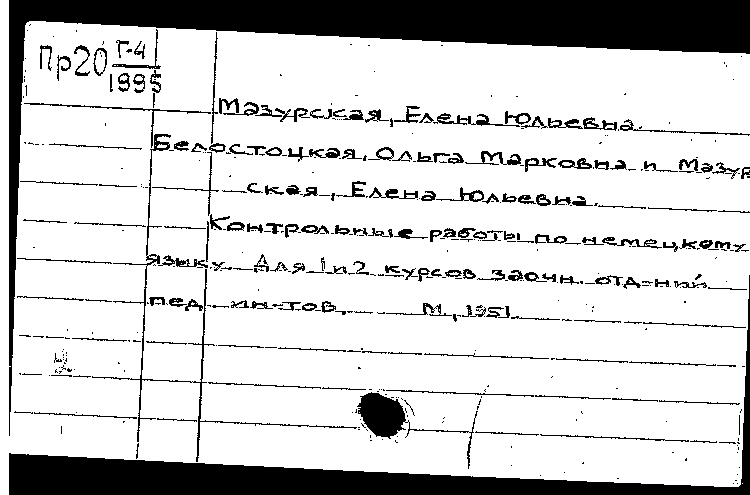 Пр20 Г-4
1995
Мазурская, Елена Юльевна.
Белостоцкая, Ольга Марковна и Мазур
ская, Елена Юльевна.
Контрольные работы по немецкому
языку. Для 1 и 2 курсов заочн. отд-ний
пед. ин-тов. М., 1951.